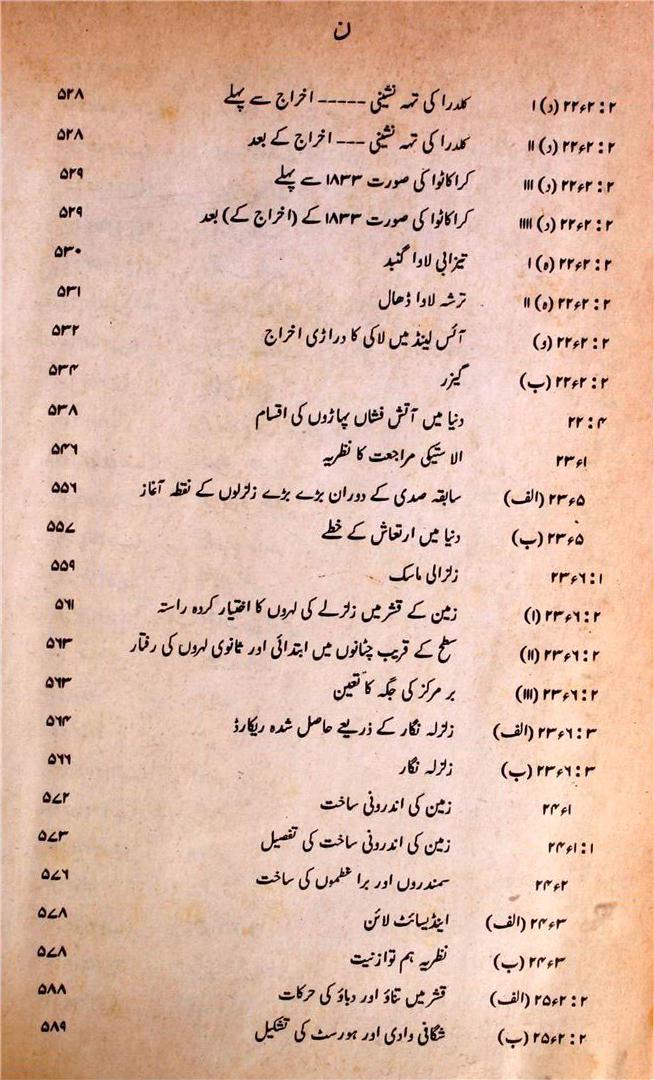 ن
۲ : ۲۲ء۲ (د) ا کلدرا کی تہہ نشینی ----- اخراج سے پہلے ۵۲۸
۲ : ۲۲ء۲ (د) اا کلدرا کی تہہ نشینی --- اخراج کے بعد ۵۲۸
۲ : ۲۲ء۲ (د) ااا کراکاٹوا کی صورت ۱۸۳۳ سے پہلے ۵۲۹
۲ : ۲۲ء۲ (د) اااا کراکاٹوا کی صورت ۱۸۳۳ کے (اخراج کے) بعد ۵۲۹
۲ : ۲۲ء۲ (ہ) ا تیزابی لاوا گنبد ۵۳۰
۲ : ۲۲ء۲ (ہ) اا ترشہ لاوا ڈھال ۵۳۱
۲ : ۲۲ء۲ (و) آئس لینڈ میں لاکی کا دراڑی اخراج ۵۳۲
۲ : ۲۲ء۲ (ب) گیزر ۵۳۴
۴ : ۲۲ دنیا میں آتش فشاں پہاڑوں کی اقسام ۵۳۸
۲۳ء۱ الاسٹیکی مراجعت کا نظریہ ۵۴۶
۲۳ء۵ (الف) سابقہ صدی کے دوران بڑے بڑے زلزلوں کے نقطہ آغاز ۵۵۶
۲۳ء۵ (ب) دنیا میں ارتعاش کے خطے ۵۵۷
۱ : ۲۳ء۶ زلزالی ماسک ۵۵۹
۲ : ۲۳ء۶ (ا) زمین کے قشر میں زلزلے کی لہروں کا اختیار کردہ راستہ ۵۶۱
۲ : ۲۳ء۶ (اا) سطح کے قریب چٹانوں میں ابتدائی اور ثانوی لہروں کی رفتار ۵۶۳
۲ : ۲۳ء۶ (ااا) بر مرکز کی جگہ کا تعین ۵۶۳
۳ : ۲۳ء۶ (الف) زلزلہ نگار کے ذریعے حاصل شدہ ریکارڈ ۵۶۴
۳ : ۲۳ء۶ (ب) زلزلہ نگار ۵۶۶
۲۴ء۱ زمین کی اندرونی ساخت ۵۷۲
۱ : ۲۴ء۱ زمین کی اندرونی ساخت کی تفصیل ۵۷۳
۲۴ء۲ سمندروں اور براعظموں کی ساخت ۵۷۶
۲۴ء۳ (الف) اینڈیسائٹ لائن ۵۷۸
۲۴ء۳ (ب) نظریہ ہم توازنیت ۵۷۸
۲ : ۲۵ء۲ (الف) قشر میں تناؤ اور دباؤ کی حرکات ۵۸۸
۲ : ۲۵ء۲ (ب) شگافی وادی اور ہورسٹ کی تشکیل ۵۸۹